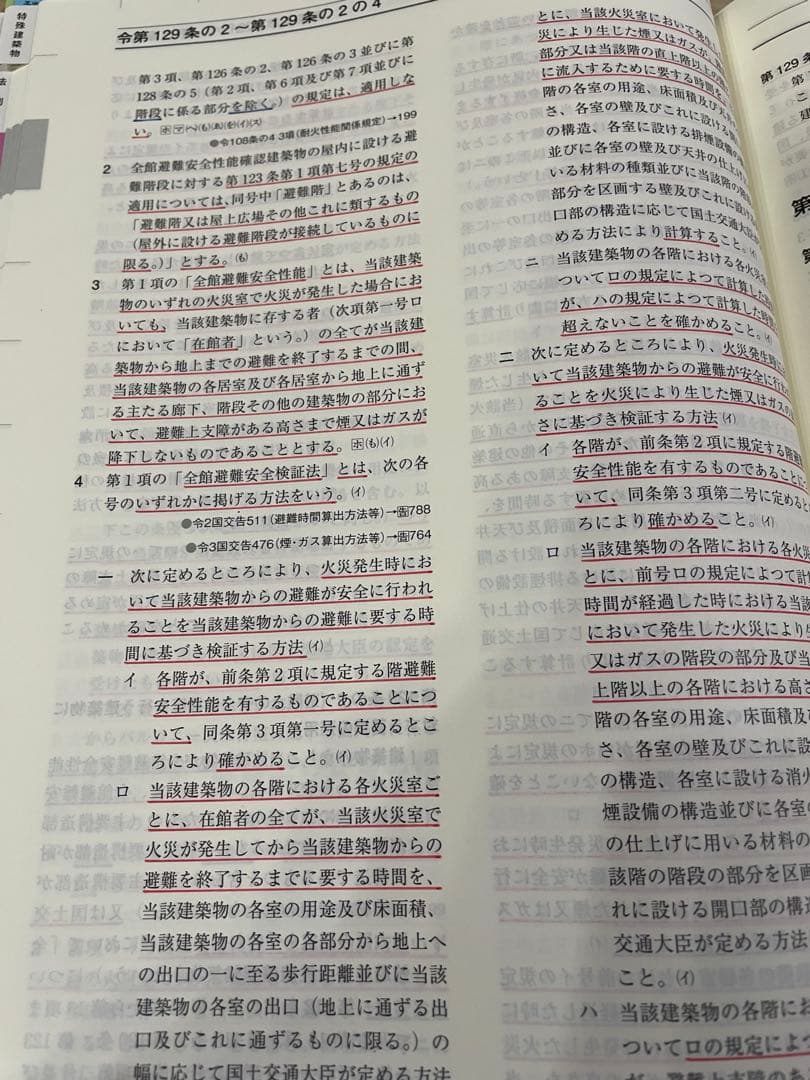 特殊建築物
令第129条の2～第129条の2の4
第3項、第126条の2、第126条の3並びに第
128条の5（第2項、第6項及び第7項並びに
階段に係る部分を除く。）の規定は、適用しな
い。
●令108条の4 3項（耐火性能関係規定）→199
2 全館避難安全性能確認建築物の屋内に設ける避
難階段に対する第123条第1項第七号の規定の
適用については、同号中「避難階」とあるのは、
「避難階又は屋上広場その他これに類するもの
（屋外に設ける避難階段が接続しているものに
限る。）」とする。(も)
3 第1項の「全館避難安全性能」とは、当該建築
物のいずれの火災室で火災が発生した場合にお
いても、当該建築物に存する者（次項第一号ロ
において「在館者」という。）の全てが当該建
築物から地上までの避難を終了するまでの間、
当該建築物の各居室及び各居室から地上に通ず
る主たる廊下、階段その他の建築物の部分にお
いて、避難上支障がある高さまで煙又はガスが
降下しないものであることとする。(も)(イ)
4 第1項の「全館避難安全検証法」とは、次の各
号のいずれかに掲げる方法をいう。(イ)
●令2国交告511（避難時間算出方法等）→告788
●令3国交告476（煙・ガス算出方法等）→告764
一 次に定めるところにより、火災発生時にお
いて当該建築物からの避難が安全に行われ
ることを当該建築物からの避難に要する時
間に基づき検証する方法(イ)
イ 各階が、前条第2項に規定する階避難
安全性能を有するものであることにつ
いて、同条第3項第一号に定めるとこ
ろにより確かめること。(イ)
ロ 当該建築物の各階における各火災室ご
とに、在館者の全てが、当該火災室で
火災が発生してから当該建築物からの
避難を終了するまでに要する時間を、
当該建築物の各室の用途及び床面積、
当該建築物の各室の各部分から地上へ
の出口の一に至る歩行距離並びに当該
建築物の各室の出口（地上に通ずる出
口及びこれに通ずるものに限る。）の
幅に応じて国土交通大臣が定める方法
とに、当該火災室において発生し
災により生じた煙又はガスが、
部分又は当該階の直上階以上の
に流入するために要する時間を、
階の各室の用途、床面積及び天井
さ、各室の壁及びこれに設ける
の構造、各室に設ける排煙設備の
並びに各室の壁及び天井の仕上げ
いる材料の種類並びに当該階の階
部分を区画する壁及びこれに設け
口部の構造に応じて国土交通大臣
める方法により計算すること。(イ)
ニ 当該建築物の各階における各火災
ついてロの規定によつて計算した
が、ハの規定によつて計算した時間
超えないことを確かめること。(イ)
二 次に定めるところにより、火災発生時
いて当該建築物からの避難が安全に行わ
ることを火災により生じた煙又はガスの
さに基づき検証する方法(イ)
イ 各階が、前条第2項に規定する階避
安全性能を有するものであることに
いて、同条第3項第二号に定めると
ろにより確かめること。(イ)
ロ 当該建築物の各階における各火災
とに、前号ロの規定によつて計
時間が経過した時における当該
において発生した火災により生
又はガスの階段の部分及び当
上階以上の各階における高さ
階の各室の用途、床面積
さ、各室の壁及びこれに
の構造、各室に設ける消
煙設備の構造並びに各室
の仕上げに用いる材料の
該階の階段の部分を区画
れに設ける開口部の構造
交通大臣が定める方法
こと。(イ)
ハ 当該建築物の各階にお
ついてロの規定によつ
第129条